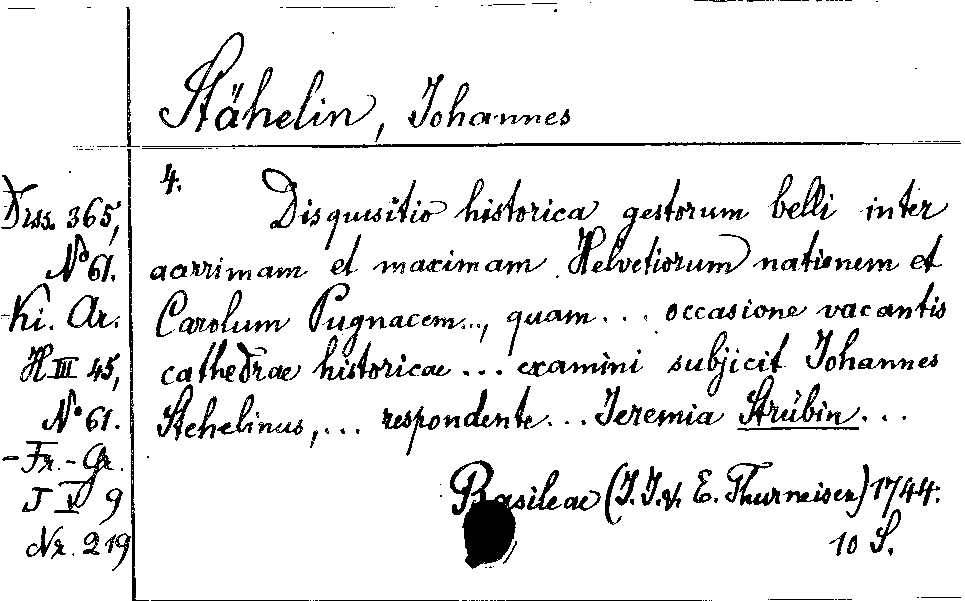 Stähelin, Johannes
4.
Disquisitio historica gestorum belli inter
acerrimam et maximam Helvetiorum nationem et
Carolum Pugnacem..., quam... occasione vacantis
cathedrae historicae... examini subjicit Johannes
Stehelinus,... respondente... Jeremia Strübin...
Basileae (J. J. & E. Thurneisen) 1744.
10 S.
Diss. 365,
No 61.
-Ki. Ar.
H III 45,
No 61.
-Fr.-Gr.
J V 9
Nr. 219